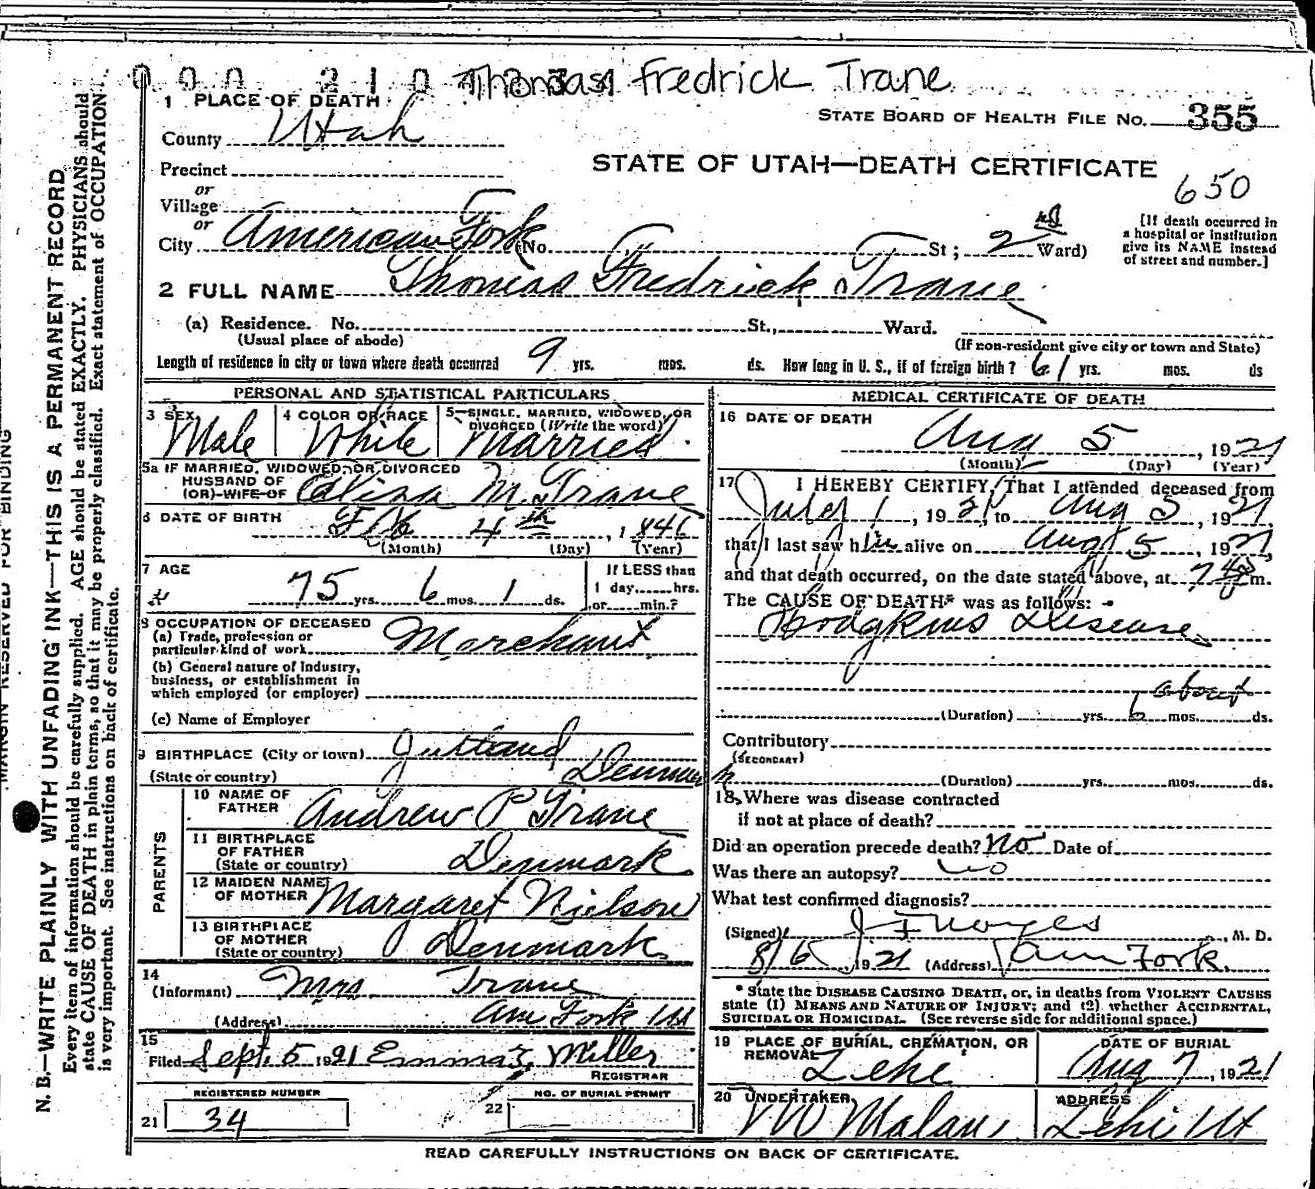 000 210 4231 Thomas Fredrick Trane
1 PLACE OF DEATH
County Utah
STATE BOARD OF HEALTH FILE NO. 355
Precinct
STATE OF UTAH—DEATH CERTIFICATE
650
or
Village
or
City American Fork (No. St; 2nd Ward)
[If death occurred in
a hospital or institution
give its NAME instead
of street and number.]
2 FULL NAME Thomas Fredrick Trane
(a) Residence. No. St., Ward.
(Usual place of abode) (If non-resident give city or town and State)
Length of residence in city or town where death occurred 9 yrs. mos. ds. How long in U. S., if of foreign birth? 61 yrs. mos. ds
PERSONAL AND STATISTICAL PARTICULARS
3 SEX Male
4 COLOR OR RACE White
5—SINGLE, MARRIED, WIDOWED, OR
DIVORCED (Write the word) Married
5a IF MARRIED, WIDOWED, OR DIVORCED
HUSBAND OF
(OR) WIFE OF Eliza M. Trane
6 DATE OF BIRTH Feb 4th, 1846
(Month) (Day) (Year)
7 AGE 75 yrs. 6 mos. 1 ds.
If LESS than
1 day......hrs.
or......min.?
8 OCCUPATION OF DECEASED
(a) Trade, profession or
particular kind of work Merchant
(b) General nature of industry,
business, or establishment in
which employed (or employer)
(c) Name of Employer
9 BIRTHPLACE (City or town) Jutland
(State or country) Denmark
PARENTS
10 NAME OF
FATHER Andrew P Trane
11 BIRTHPLACE
OF FATHER
(State or country) Denmark
12 MAIDEN NAME
OF MOTHER Margaret Nielson
13 BIRTHPLACE
OF MOTHER
(State or country) Denmark
14
(Informant) Mrs. Trane
(Address) Am Fork Ut
15
Filed Sept. 5 1921 Emma Miller
REGISTRAR
REGISTERED NUMBER
21 34
NO. OF BURIAL PERMIT
22
MEDICAL CERTIFICATE OF DEATH
16 DATE OF DEATH Aug 5, 1921
(Month) (Day) (Year)
17 I HEREBY CERTIFY, That I attended deceased from
July 1, 1921, to Aug 5, 1921,
that I last saw him alive on Aug 5, 1921,
and that death occurred, on the date stated above, at 7 45 m.
The CAUSE OF DEATH* was as follows:
Hodgkins Disease
about
(Duration) yrs. 6 mos. ds.
Contributory
(SECONDARY)
(Duration) yrs. mos. ds.
18 Where was disease contracted
if not at place of death?
Did an operation precede death? No Date of
Was there an autopsy? No
What test confirmed diagnosis?
(Signed) J F Noyes, M. D.
8/6 1921 (Address) Am Fork.
* State the DISEASE CAUSING DEATH, or, in deaths from VIOLENT CAUSES
state (1) MEANS AND NATURE OF INJURY; and (2) whether ACCIDENTAL,
SUICIDAL OR HOMICIDAL. (See reverse side for additional space.)
19 PLACE OF BURIAL, CREMATION, OR
REMOVAL Lehi
DATE OF BURIAL
Aug 7, 1921
20 UNDERTAKER
Malan
ADDRESS
Lehi Ut
READ CAREFULLY INSTRUCTIONS ON BACK OF CERTIFICATE.
MARGIN RESERVED FOR BINDING
N. B.—WRITE PLAINLY WITH UNFADING INK—THIS IS A PERMANENT RECORD
Every item of information should be carefully supplied. AGE should be stated EXACTLY. PHYSICIANS should
state CAUSE OF DEATH in plain terms, so that it may be properly classified. Exact statement of OCCUPATION
is very important. See instructions on back of certificate.